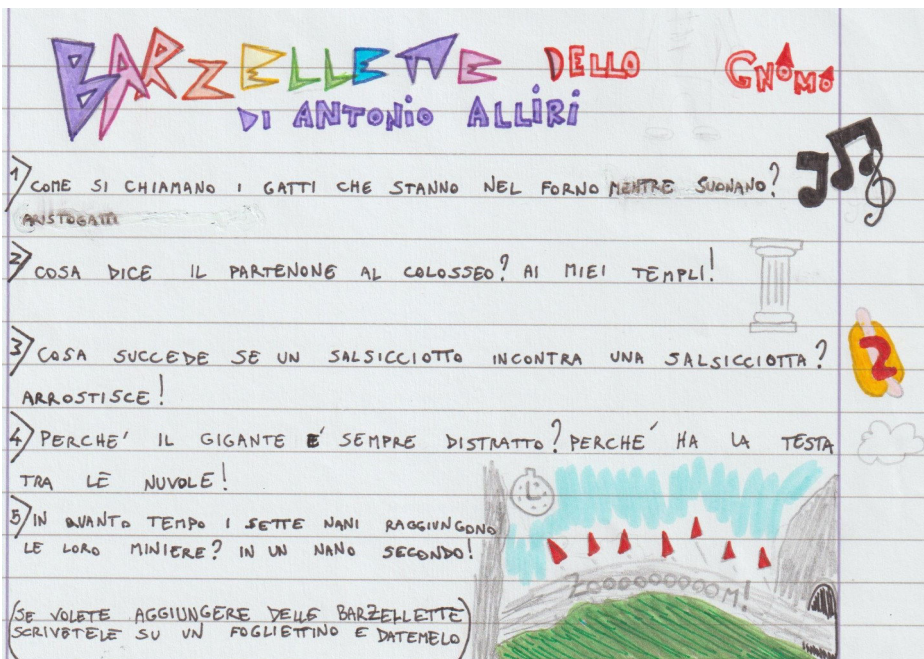 BARZELLETTE DELLO GNOMO
DI ANTONIO ALLIRI
1) COME SI CHIAMANO I GATTI CHE STANNO NEL FORNO MENTRE SUONANO?
ARISTOGATTI
2) COSA DICE IL PARTENONE AL COLOSSEO? AI MIEI TEMPLI!
3) COSA SUCCEDE SE UN SALSICCIOTTO INCONTRA UNA SALSICCIOTTA?
ARROSTISCE!
2
4) PERCHE' IL GIGANTE E' SEMPRE DISTRATTO? PERCHE' HA LA TESTA
TRA LE NUVOLE!
5) IN QUANTO TEMPO I SETTE NANI RAGGIUNGONO
LE LORO MINIERE? IN UN NANO SECONDO!
ZOOOOOOOOOOM!
(SE VOLETE AGGIUNGERE DELLE BARZELLETTE
SCRIVETELE SU UN FOGLIETTINO E DATEMELO)